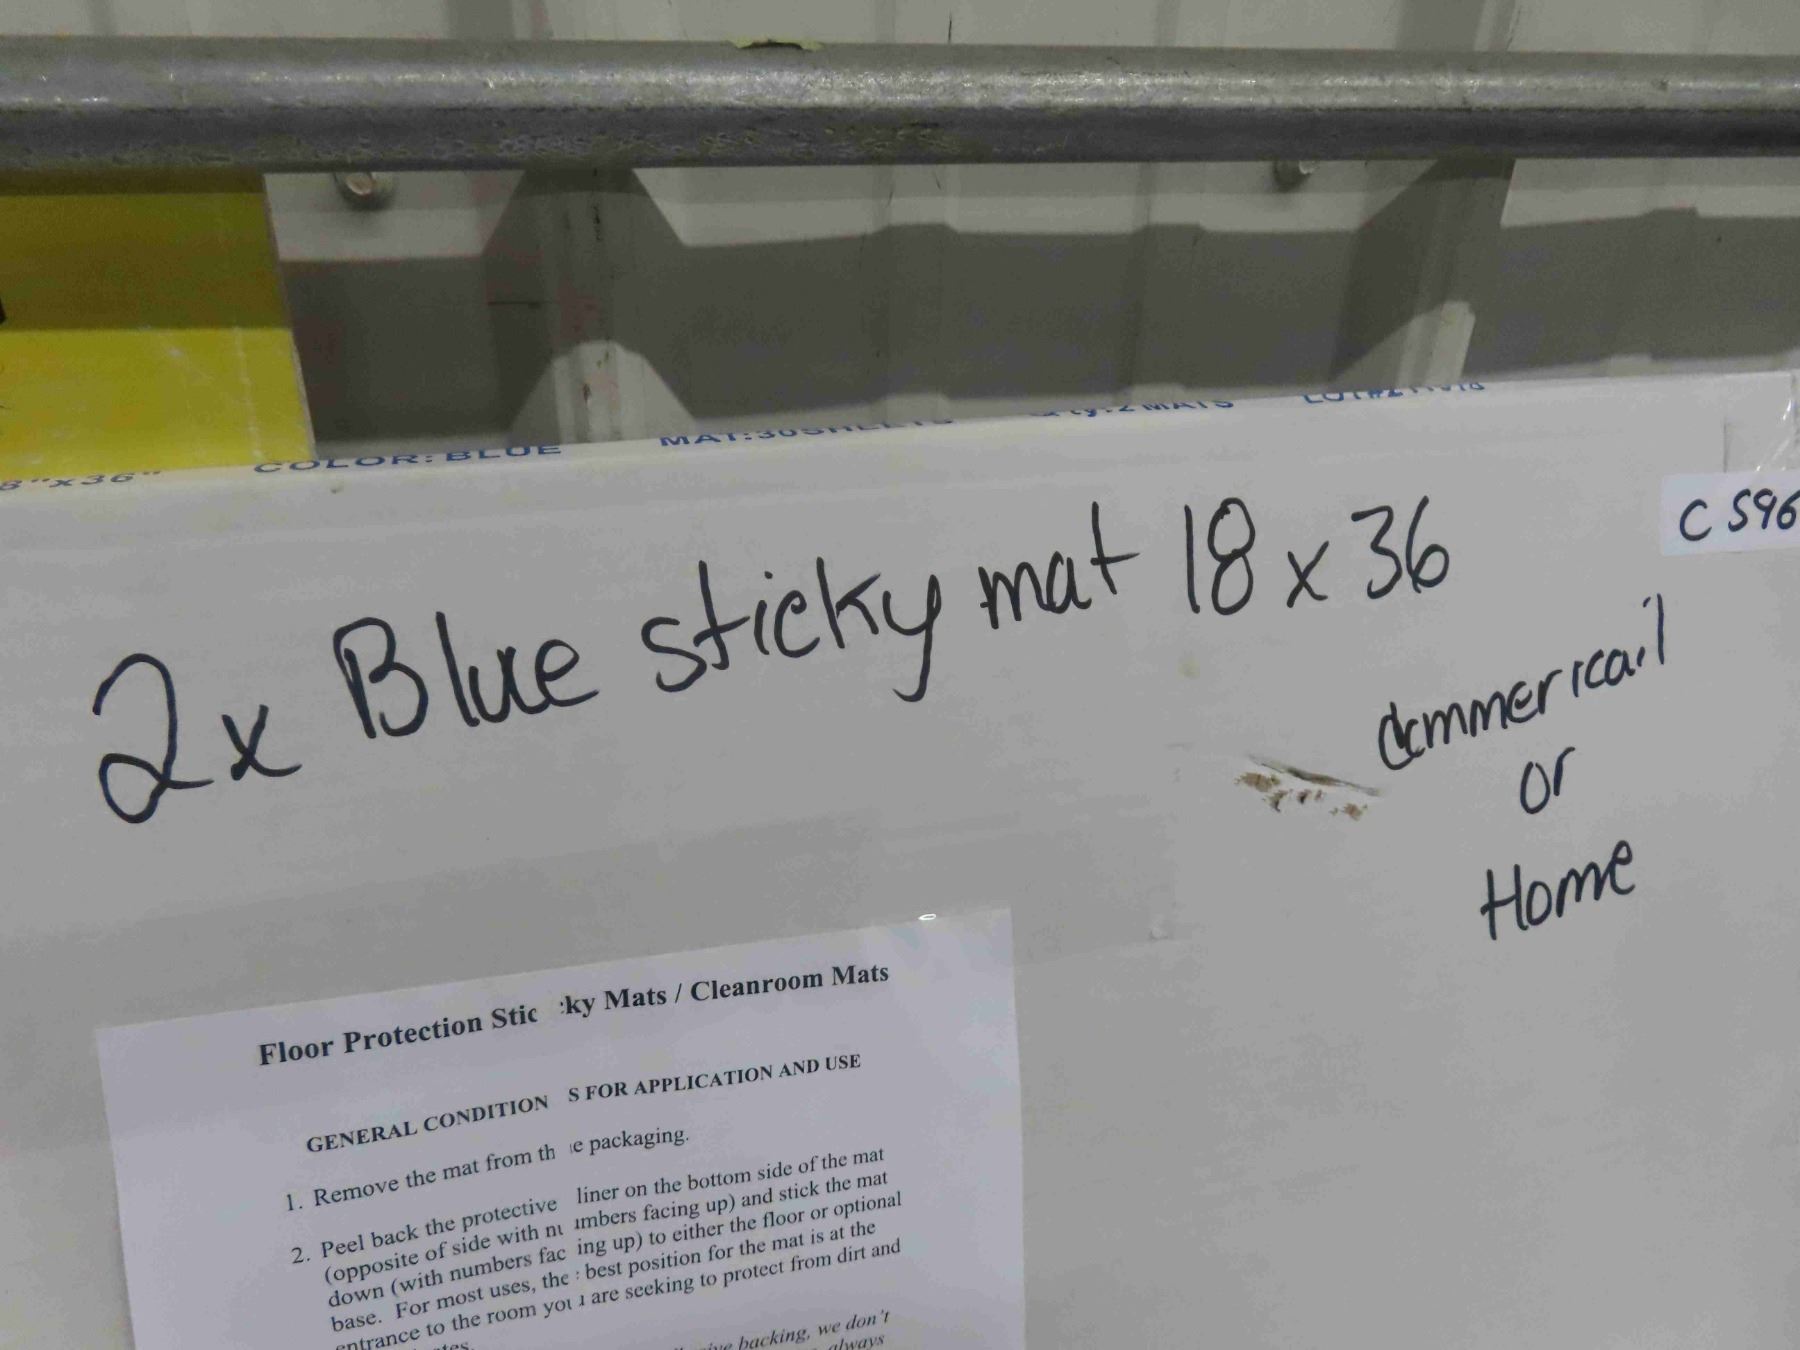 8"x36" COLOR: BLUE MAT:30SHEETS Qty:2 MATS
C 596
2x Blue sticky mat 18 x 36
Commericail
or
Home
Floor Protection Sticky Mats / Cleanroom Mats
GENERAL CONDITIONS FOR APPLICATION AND USE
1. Remove the mat from the packaging.
2. Peel back the protective liner on the bottom side of the mat
(opposite of side with numbers facing up) and stick the mat
down (with numbers facing up) to either the floor or optional
base. For most uses, the best position for the mat is at the
entrance to the room you are seeking to protect from dirt and
backing, we don't
always